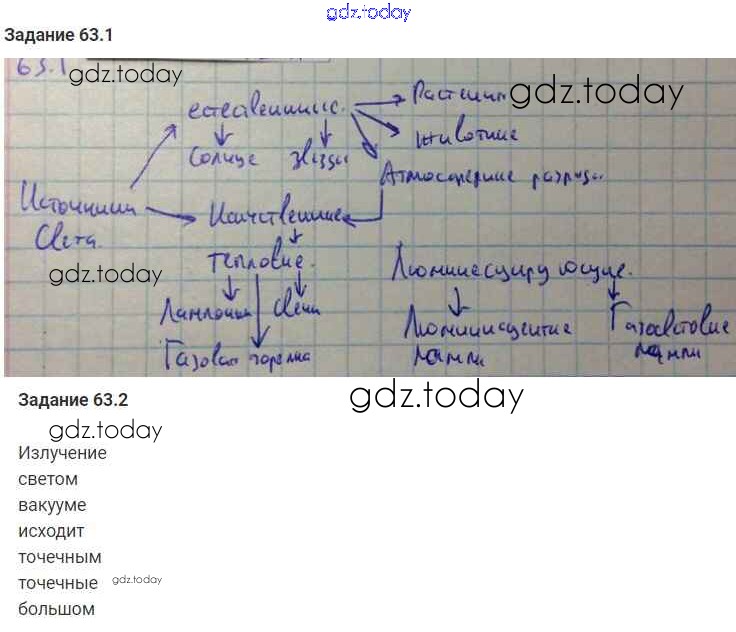 gdz.today
Задание 63.1
63.1
gdz.today
естественные
Растения
gdz.today
животные
Солнце звёзды
Атмосферные разряды
Источники
Света
Исичственные
тепловые
gdz.today
Люминесцирующие
Лампочки свечи
Люминисцентные
лампы
Газосветовые
лампы
Газовая горелка
Задание 63.2
gdz.today
gdz.today
Излучение
светом
вакууме
исходит
точечным
точечные gdz.today
большом